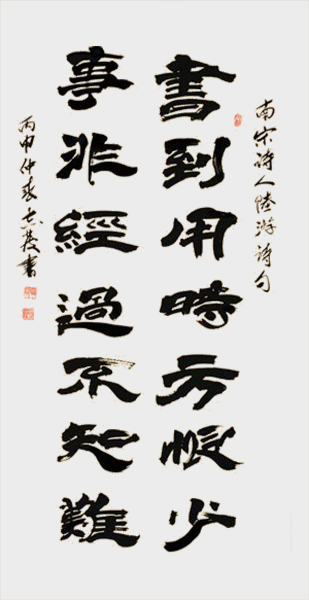 南宋诗人陸游诗句
書到用時方恨少
事非經過不知難
丙申仲志書